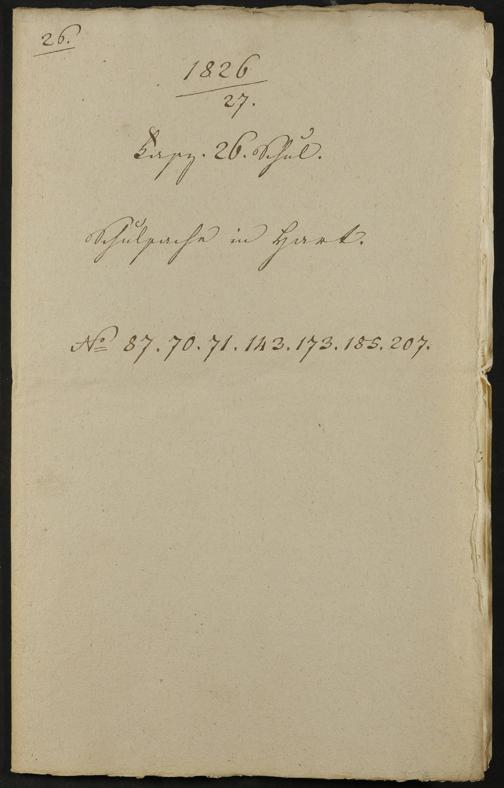 26.
1826
27.
Fasz. 26. Schul.
Schulsache in Hart.
No 87. 70. 71. 143. 173. 185. 207.